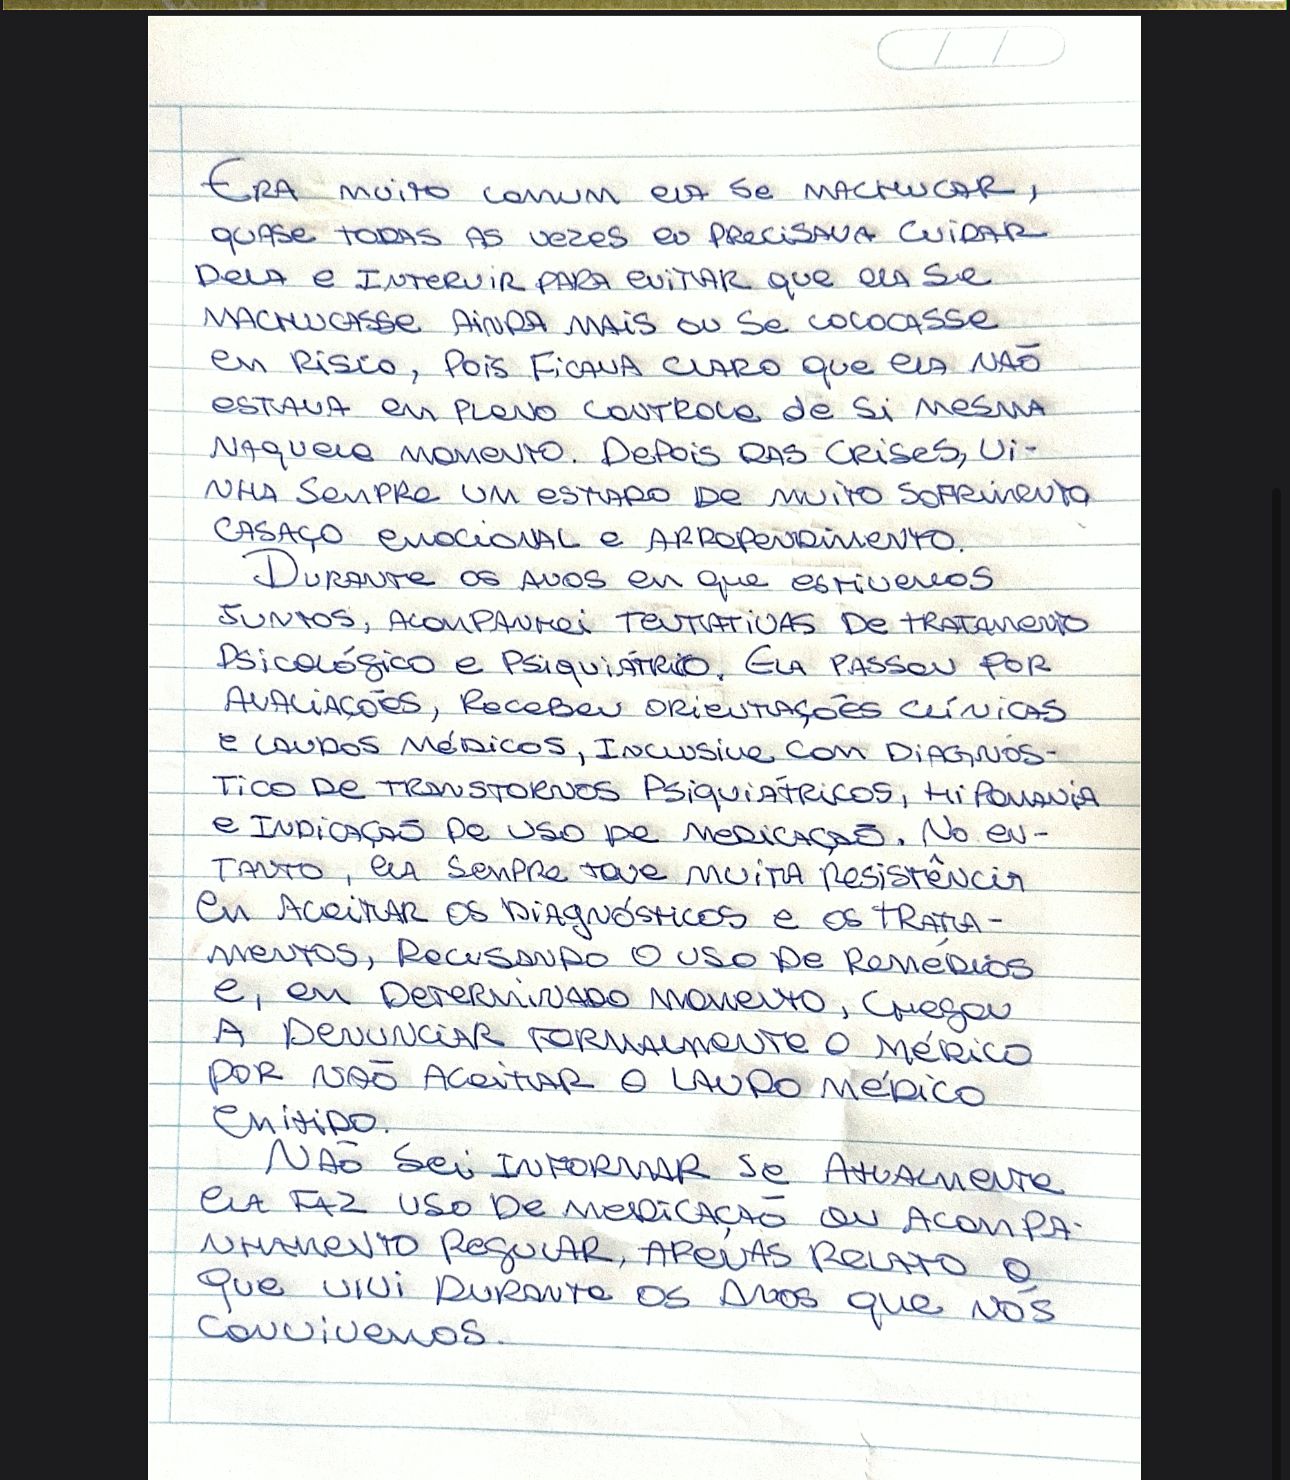 Era muito comum ela se machucar,
quase todas as vezes eu precisava cuidar
dela e intervir para evitar que ela se
machucasse ainda mais ou se cococasse
em risco, pois ficava claro que ela não
estava em pleno controle de si mesma
naquele momento. Depois das crises, vi-
nha sempre um estado de muito sofrimento
casaço emocional e arrependimento.
Durante os anos em que estivemos
juntos, acompanhei tentativas de tratamento
psicológico e psiquiátrio. Ela passou por
avaliações, recebeu orientações clínicas
e laudos médicos, inclusive com diagnós-
tico de transtornos psiquiátricos, hipomania
e indicação de uso de medicação. No en-
tanto, ela sempre teve muita resistência
em aceitar os diagnósticos e os trata-
mentos, recusando o uso de remédios
e, em determinado momento, chegou
a denunciar formalmente o médico
por não aceitar o laudo médico
emitido.
Não sei informar se atualmente
ela faz uso de medicação ou acompa-
nhamento regular, apenas relato o
que vivi durante os anos que nós
convivemos.